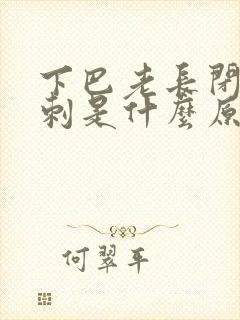 下巴老長閉
刺是什麼原
何翠平